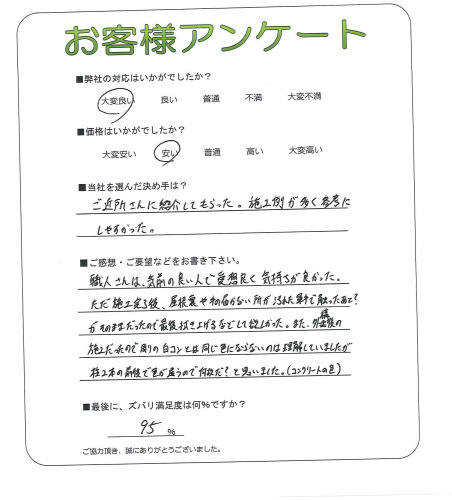 お客様アンケート
■弊社の対応はいかがでしたか？
大変良い 良い 普通 不満 大変不満
■価格はいかがでしたか？
大変安い 安い 普通 高い 大変高い
■当社を選んだ決め手は？
ご近所さんに紹介してもらった。施工例が多く参考に
しやすかった。
■ご感想・ご要望などをお書き下さい。
職人さんは、気前の良い人で愛想良く気持ちが良かった。
ただ施工完了後、屋根裏やその届かない所が汚れた軍手で触ったあと？
がそのままだったので最後拭き上げるなどして欲しかった。また、外構後の
施工だったので周りの白コンとは同じ色にならないのは理解していましたが
柱2本の前後で色が違うので何故だ？と思いました。(コンクリートの色)
■最後に、ズバリ満足度は何%ですか？
95 %
ご協力頂き、誠にありがとうございました。